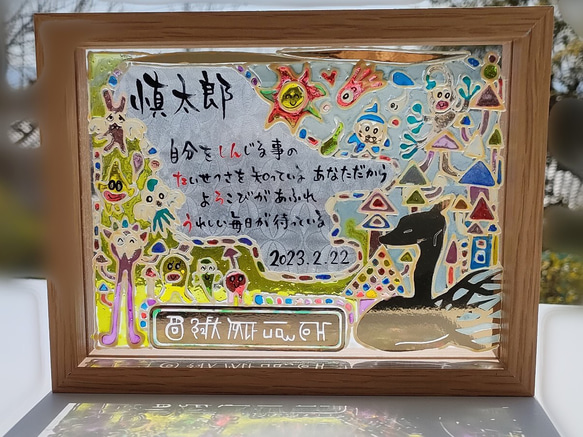 慎太郎
自分をしんじる事の
たいせつさを知っている あなただから
よろこびがあふれ
うれしい毎日が待っている
2023.2.22